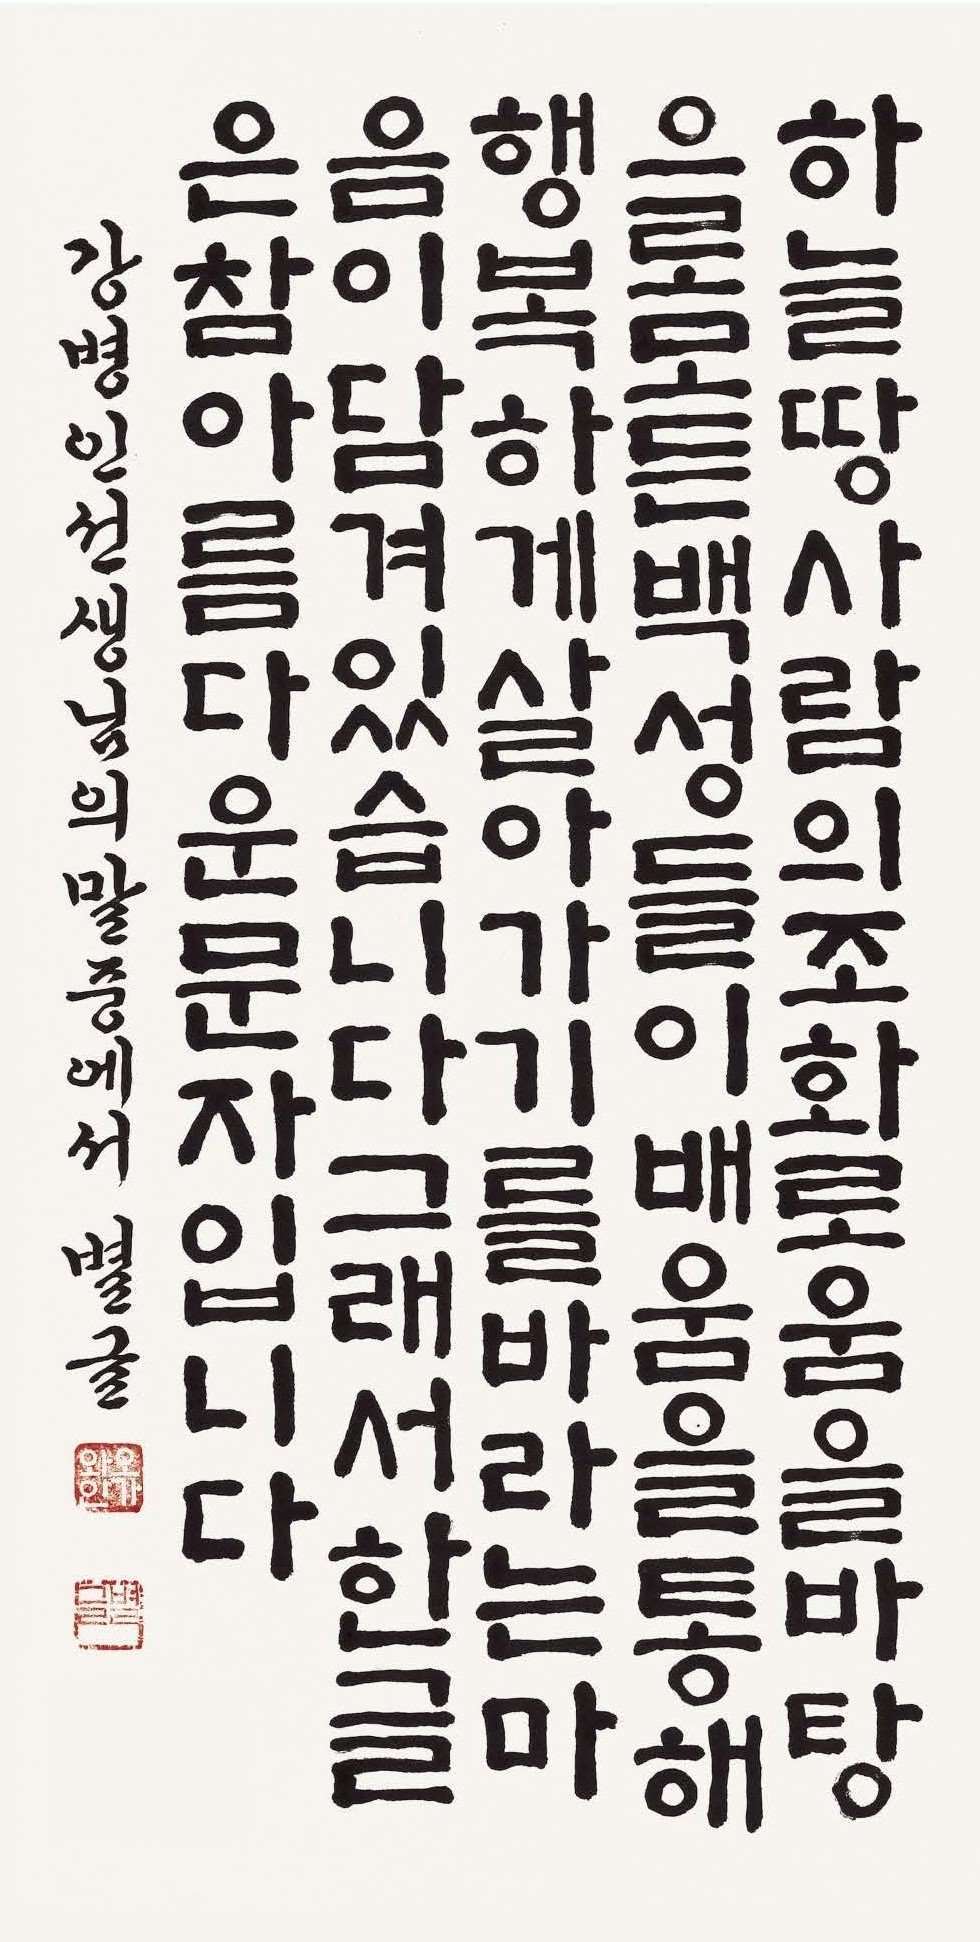 하늘땅사람의조화로움을바탕
으로모든백성들이배움을통해
행복하게살아가기를바라는마
음이담겨있습니다그래서한글
은참아름다운문자입니다
강병인선생님의말중에서 별글